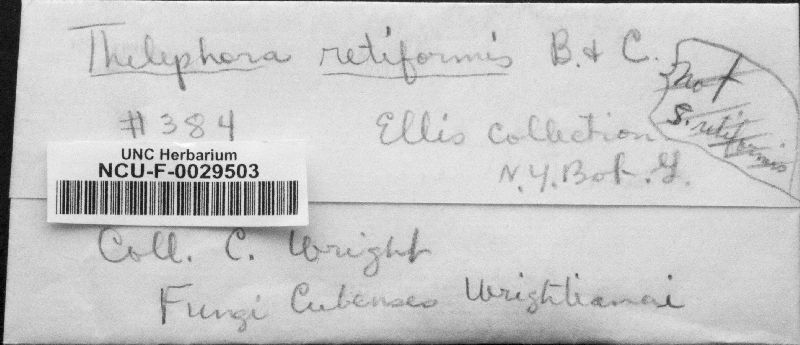 Thelephora retiformis B. & C.
not
S. retiformis
#384 Ellis collection
N.Y. Bot. G.
UNC Herbarium
NCU-F-0029503
Coll. C. Wright
Fungi Cubenses Wrightianai